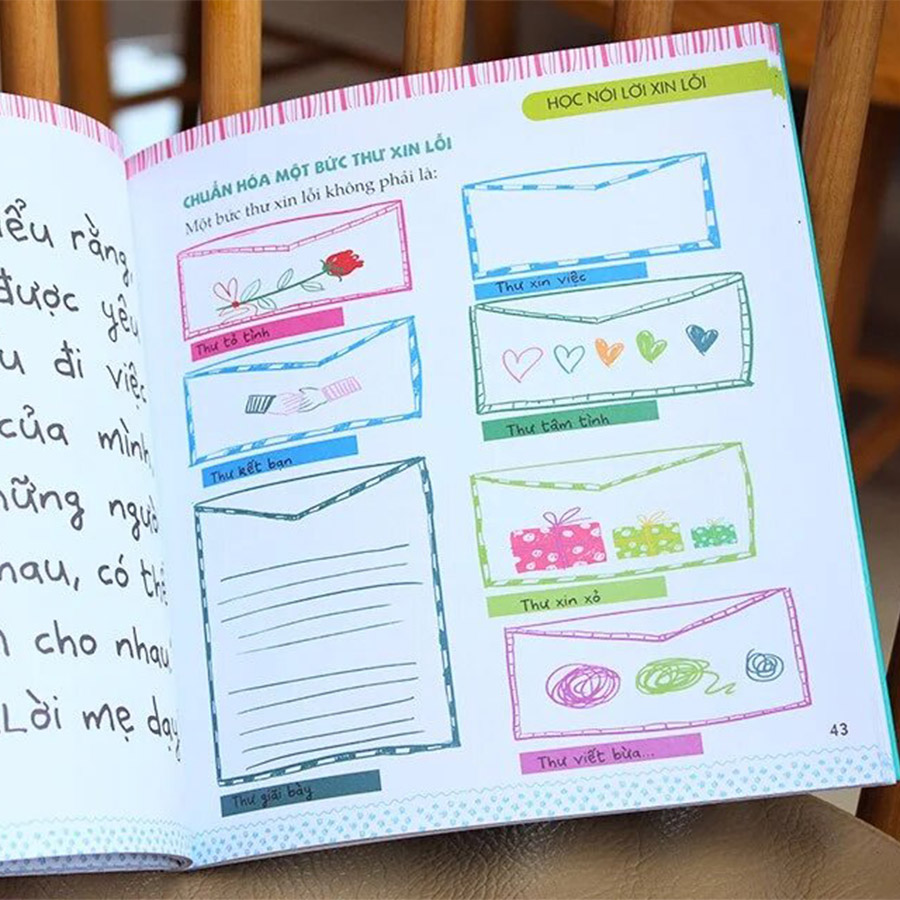 rằng,
được yêu
đi việc
của mình,
người
nhau, có thể
cho nhau
Lời mẹ dạy
HỌC NÓI LỜI XIN LỖI
CHUẨN HÓA MỘT BỨC THƯ XIN LỖI
Một bức thư xin lỗi không phải là:
Thư tỏ tình
Thư kết bạn
Thư giãi bày
Thư xin việc
Thư tâm tình
Thư xin xỏ
Thư viết bừa...
43